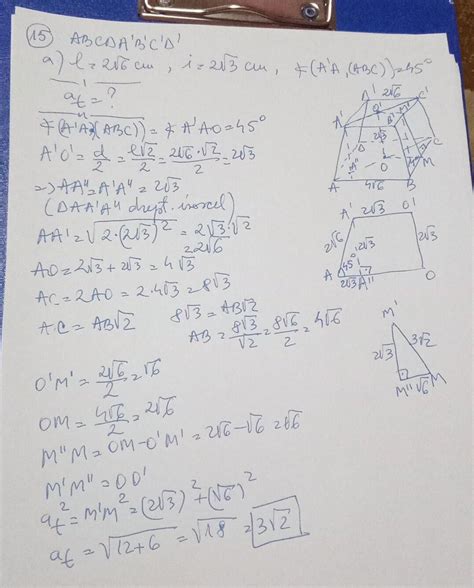 15 ABCDA'B'C'D'
a) l=2√6 cm, i=2√3 cm, ∢(A'A,(ABC))=45°
at=?
∢(A'A,(ABC))=∢A'AO=45°
A'O'=d/2=l√2/2=2√6·√2/2=2√3
=> AA''=A'A''=2√3
(ΔAA'A'' drept. isoscel)
AA'=√2·(2√3)²=2√3·√2
=2√6
AO=2√3+2√3=4√3
AC=2AO=2·4√3=8√3
AC=AB√2 8√3=AB√2
AB=8√3/√2=8√6/2=4√6
O'M'=2√6/2=√6
OM=4√6/2=2√6
M''M=OM-O'M'=2√6-√6=√6
M'M''=OO'
at²=M'M²=(2√3)²+(√6)²
at=√12+6=√18=3√2
D' 2√6 C'
A' O' B' M'
2√3
D C
A'' O M'' M
A 4√6 B
A' 2√3 O'
2√6 2√3 2√3
45°
A 2√3 A'' O
M'
2√3 3√2
M'' √6 M